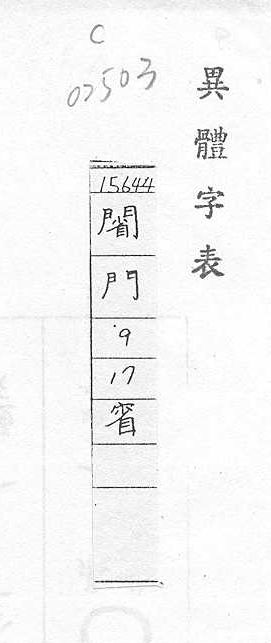 C
02503
異體字表
15644
門
9
17
省